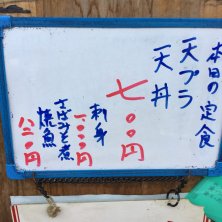 本日の定食
天プラ
天丼
七〇〇円
刺身
一〇〇〇円
さばみそ煮
焼魚
八五〇円